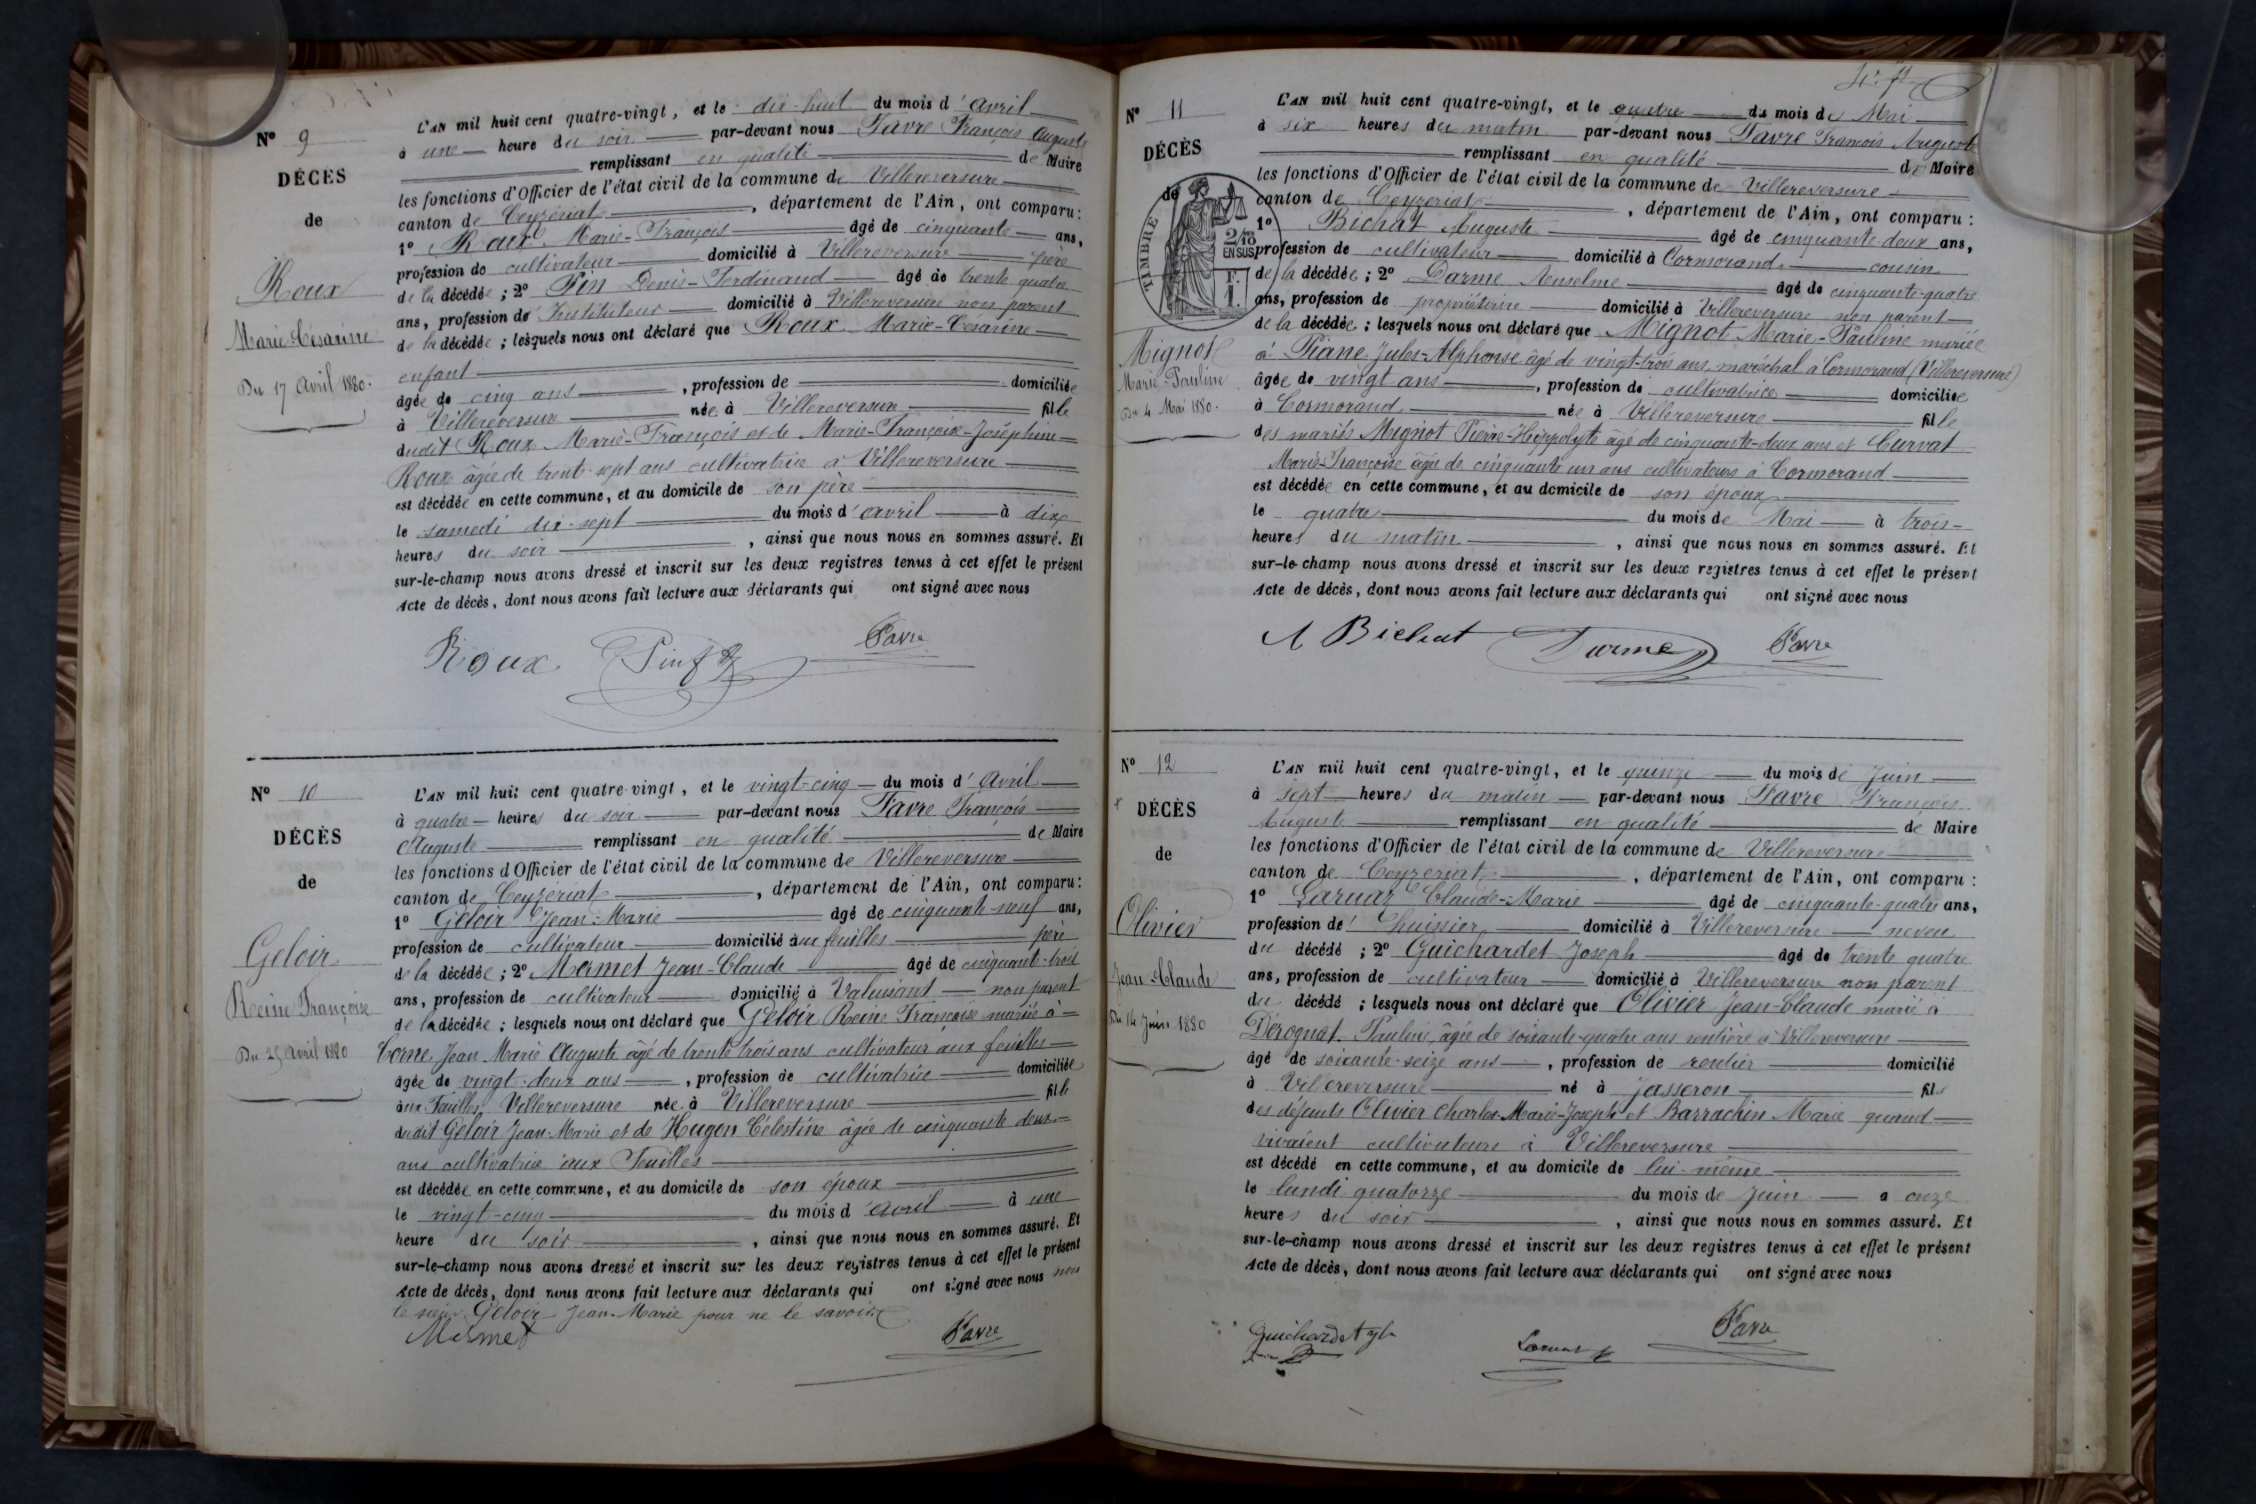 N° 9
DÉCÈS
de
Roux
Marie-Césarine
Du 17 Avril 1880.
L'AN mil huit cent quatre-vingt, et le dix-huit du mois d'Avril
à une heure du soir par-devant nous Favre François Auguste
remplissant en qualité de Maire
les fonctions d'Officier de l'état civil de la commune de Villereversure
canton de Ceyzériat, département de l'Ain, ont comparu :
1° Roux Marie-François âgé de cinquante ans,
profession de cultivateur domicilié à Villereversure père
de la décédée ; 2° Pin Denis-Ferdinand âgé de trente quatre
ans, profession d'Instituteur domicilié à Villereversure non parent
de la décédée ; lesquels nous ont déclaré que Roux Marie-Césarine
enfant
âgée de cinq ans, profession de domiciliée
à Villereversure née à Villereversure fille
dudit Roux Marie-François et de Marie-Françoise-Joséphine
Roux âgée de trente-sept ans cultivatrice à Villereversure
est décédée en cette commune, et au domicile de son père
le samedi dix-sept du mois d'avril à dix
heures du soir, ainsi que nous nous en sommes assuré. Et
sur-le-champ nous avons dressé et inscrit sur les deux registres tenus à cet effet le présent
Acte de décès, dont nous avons fait lecture aux déclarants qui ont signé avec nous
Roux Pin Favre
N° 10
DÉCÈS
de
Geloir
Reine Françoise
Du 25 Avril 1880
L'AN mil huit cent quatre-vingt, et le vingt-cinq du mois d'Avril
à quatre heures du soir par-devant nous Favre François
Auguste remplissant en qualité de Maire
les fonctions d'Officier de l'état civil de la commune de Villereversure
canton de Ceyzériat, département de l'Ain, ont comparu :
1° Geloir Jean-Marie âgé de cinquante-neuf ans,
profession de cultivateur domicilié aux feuilles père
de la décédée ; 2° Mermet Jean-Claude âgé de cinquante-trois
ans, profession de cultivateur domicilié à Valuisant non parent
de la décédée ; lesquels nous ont déclaré que Geloir Reine Françoise mariée à
Corne Jean Marie Auguste âgé de trente trois ans cultivateur aux feuilles
âgée de vingt-deux ans, profession de cultivatrice domiciliée
aux Feuilles Villereversure née à Villereversure fille
dudit Geloir Jean-Marie et de Hugon Célestine âgée de cinquante deux
ans cultivatrice aux Feuilles
est décédée en cette commune, et au domicile de son époux
le vingt-cinq du mois d'Avril à une
heure du soir, ainsi que nous nous en sommes assuré. Et
sur-le-champ nous avons dressé et inscrit sur les deux registres tenus à cet effet le présent
Acte de décès, dont nous avons fait lecture aux déclarants qui ont signé avec nous non
le sieur Geloir Jean-Marie pour ne le savoir
Mermet Favre
N° 11
DÉCÈS
de
TIMBRE
2/10
EN SUS
F.
1.
Mignot
Marie-Pauline
Du 4 Mai 1880.
L'AN mil huit cent quatre-vingt, et le quatre du mois de Mai
à six heures du matin par-devant nous Favre François Auguste
remplissant en qualité de Maire
les fonctions d'Officier de l'état civil de la commune de Villereversure
canton de Ceyzériat, département de l'Ain, ont comparu :
1° Bichat Auguste âgé de cinquante-deux ans,
profession de cultivateur domicilié à Cormorand cousin
de la décédée ; 2° Darme Anselme âgé de cinquante-quatre
ans, profession de propriétaire domicilié à Villereversure non parent
de la décédée ; lesquels nous ont déclaré que Mignot Marie-Pauline mariée
à Piane Jules-Alphonse âgé de vingt-trois ans maréchal à Cormorand (Villereversure)
âgée de vingt ans, profession de cultivatrice domiciliée
à Cormorand née à Villereversure fille
des mariés Mignot Pierre-Hippolyte âgé de cinquante-deux ans et Curvat
Marie-Françoise âgée de cinquante un ans cultivateurs à Cormorand
est décédée en cette commune, et au domicile de son époux
le quatre du mois de Mai à trois
heures du matin, ainsi que nous nous en sommes assuré. Et
sur-le-champ nous avons dressé et inscrit sur les deux registres tenus à cet effet le présent
Acte de décès, dont nous avons fait lecture aux déclarants qui ont signé avec nous
A Bichat Darme Favre
N° 12
DÉCÈS
de
Olivier
Jean-Claude
Du 14 Juin 1880
L'AN mil huit cent quatre-vingt, et le quinze du mois de Juin
à sept heures du matin par-devant nous Favre François
Auguste remplissant en qualité de Maire
les fonctions d'Officier de l'état civil de la commune de Villereversure
canton de Ceyzériat, département de l'Ain, ont comparu :
1° Laruaz Claude-Marie âgé de cinquante-quatre ans,
profession d'huissier domicilié à Villereversure neveu
du décédé ; 2° Guichardet Joseph âgé de trente quatre
ans, profession de cultivateur domicilié à Villereversure non parent
du décédé ; lesquels nous ont déclaré que Olivier Jean-Claude marié à
Dérognat Pauline âgée de soixante-quatre ans rentière à Villereversure
âgé de soixante-seize ans, profession de rentier domicilié
à Villereversure né à Jasseron fils
des défunts Olivier Charles-Marie-Joseph et Barrachin Marie quand
vivaient cultivateurs à Villereversure
est décédé en cette commune, et au domicile de lui-même
le lundi quatorze du mois de Juin à onze
heures du soir, ainsi que nous nous en sommes assuré. Et
sur-le-champ nous avons dressé et inscrit sur les deux registres tenus à cet effet le présent
Acte de décès, dont nous avons fait lecture aux déclarants qui ont signé avec nous
Guichardet Laruaz Favre